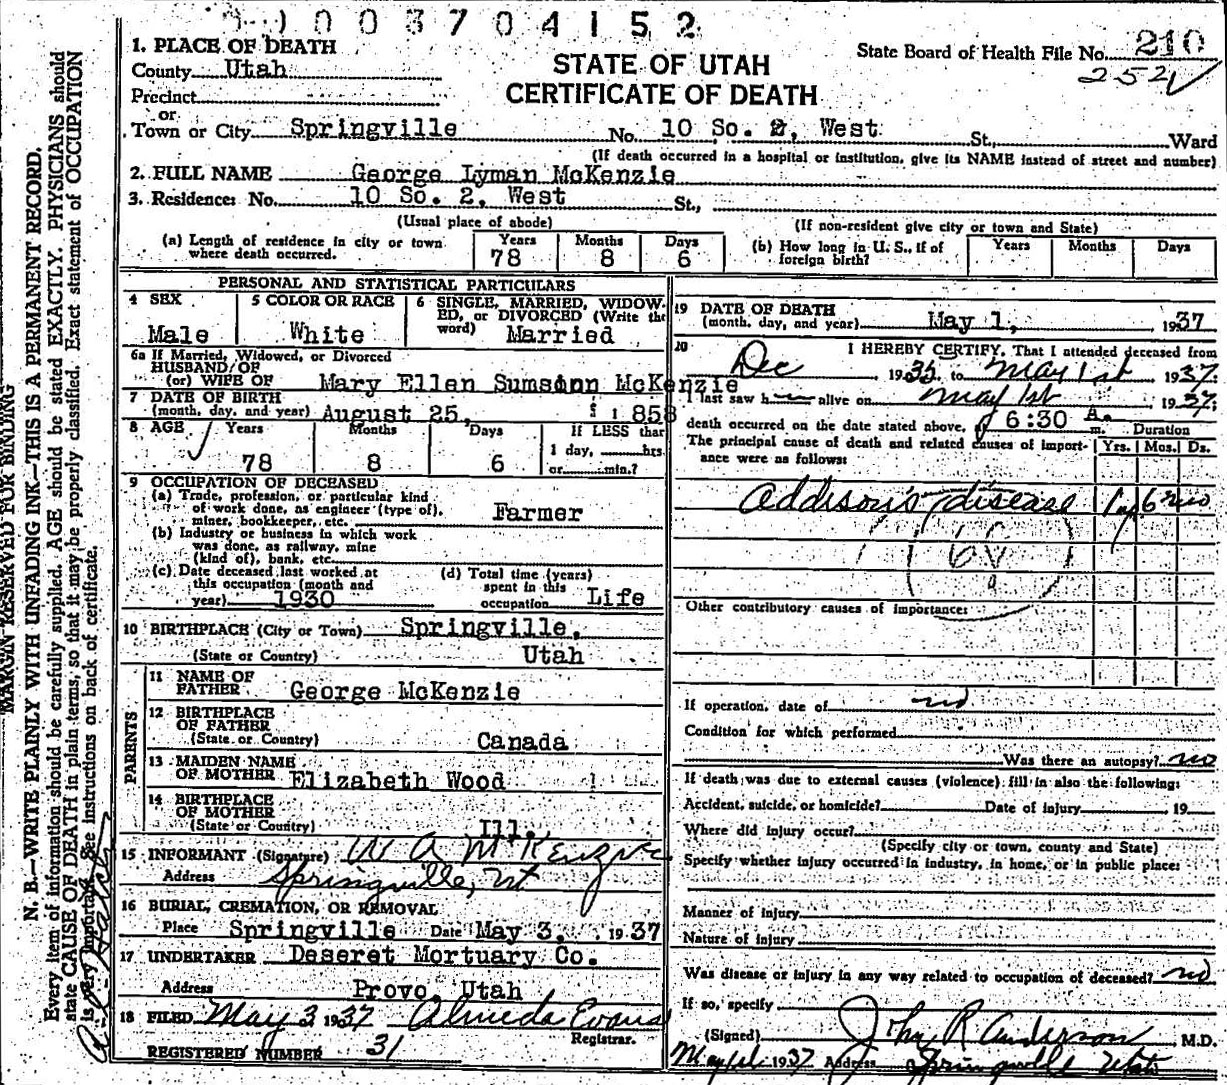 0 0 0 0 3 7 0 4 1 5 2
1. PLACE OF DEATH
County Utah
Precinct
or
Town or City Springville No. 10 So. 2, West St., Ward
STATE OF UTAH
CERTIFICATE OF DEATH
State Board of Health File No. 210
252
(If death occurred in a hospital or institution, give its NAME instead of street and number)
2. FULL NAME George Lyman McKenzie
3. Residence: No. 10 So. 2. West St.,
(Usual place of abode) (If non-resident give city or town and State)
(a) Length of residence in city or town where death occurred.
Years 78 Months 8 Days 6
(b) How long in U. S., if of foreign birth?
Years Months Days
PERSONAL AND STATISTICAL PARTICULARS
4 SEX
Male
5 COLOR OR RACE
White
6 SINGLE, MARRIED, WIDOWED, or DIVORCED (Write the word)
Married
6a If Married, Widowed, or Divorced
HUSBAND OF
(or) WIFE OF Mary Ellen McKenzie
7 DATE OF BIRTH
(month, day, and year) August 25, 1858
8 AGE Years Months Days If LESS than
1 day, hrs.
78 8 6 or min.?
9 OCCUPATION OF DECEASED
(a) Trade, profession, or particular kind
of work done, as engineer (type of),
miner, bookkeeper, etc. Farmer
(b) Industry or business in which work
was done, as railway, mine
(kind of), bank, etc.
(c) Date deceased last worked at
this occupation (month and
year) 1930
(d) Total time (years)
spent in this
occupation Life
10 BIRTHPLACE (City or Town) Springville,
(State or Country) Utah
PARENTS
11 NAME OF
FATHER George McKenzie
12 BIRTHPLACE
OF FATHER
(State or Country) Canada
13 MAIDEN NAME
OF MOTHER Elizabeth Wood
14 BIRTHPLACE
OF MOTHER
(State or Country) Ill.
15 INFORMANT (Signature) W A McKenzie
Address Springville, Ut
16 BURIAL, CREMATION, OR REMOVAL
Place Springville Date May 3, 1937
17 UNDERTAKER Deseret Mortuary Co.
Address Provo, Utah
18 FILED May 3, 1937 Almeda Evans
Registrar.
REGISTERED NUMBER 31
19 DATE OF DEATH
(month, day, and year) May 1, 1937
20 I HEREBY CERTIFY, That I attended deceased from
Dec 1935 to May 1st 1937.
I last saw h alive on May 1st 1937.
death occurred on the date stated above, 6:30 A. m.
Duration
The principal cause of death and related causes of importance were as follows: Yrs. Mos. Ds.
Addison's disease 1 6 mo
Other contributory causes of importance:
If operation, date of no
Condition for which performed
Was there an autopsy? no
If death was due to external causes (violence) fill in also the following:
Accident, suicide, or homicide? Date of injury 19
Where did injury occur?
(Specify city or town, county and State)
Specify whether injury occurred in industry, in home, or in public place:
Manner of injury
Nature of injury
Was disease or injury in any way related to occupation of deceased? no
If so, specify
(Signed) John R Anderson M.D.
1937 Address Springville Utah
MARGIN RESERVED FOR BINDING
N. B.—WRITE PLAINLY WITH UNFADING INK—THIS IS A PERMANENT RECORD.
Every item of information should be carefully supplied. AGE should be stated EXACTLY. PHYSICIANS should
state CAUSE OF DEATH in plain terms, so that it may be properly classified. Exact statement of OCCUPATION
is very important. See instructions on back of certificate.